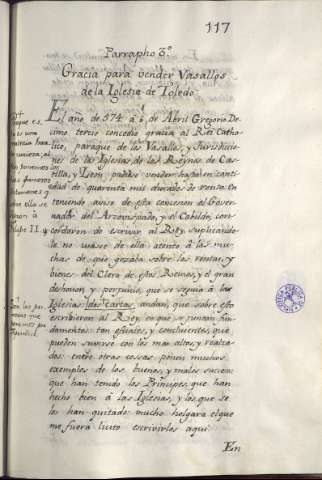 117
Parrapho 3º
Gracia para vender Vasallos
de la Iglesia de Toledo.
El año de 574 à 6 de Abril Gregorio De-
cimo tercio concedio gracia al Rei Catho-
lico, para que de los Vasallos, y Jurisdicio-
nes de las Iglesias de los Reynos de Cas-
tilla, y Leon, pudiese vender hasta en canti-
dad de quarenta mil ducados de renta. En
teniendo aviso de esta concesion el Gover-
nador del Arzovispado, y el Cabildo, con-
cordaron de escrivir al Rey, suplicando-
le no usase de ella atento à las mu-
chas de que gozaba sobre las rentas, y
bienes del Clero de estos Reinos, y el gran
deshonor, y perjuicio, que se seguia à las
Iglesias, de Cartas, andan, que sobre esto
escribieron al Rey, en que se juntan fun-
damentos tan eficaces, y concluientes, que
pueden ser con los mas altos, y realza-
dos: entre otras cosas ponen muchos
exemplos de los buenos, y malos sucesos
que han tenido los Principes, que han
hecho bien à las Iglesias, y los que se
lo han quitado: mucho holgara el que
me fuera licito escrivirlos aqui.
En